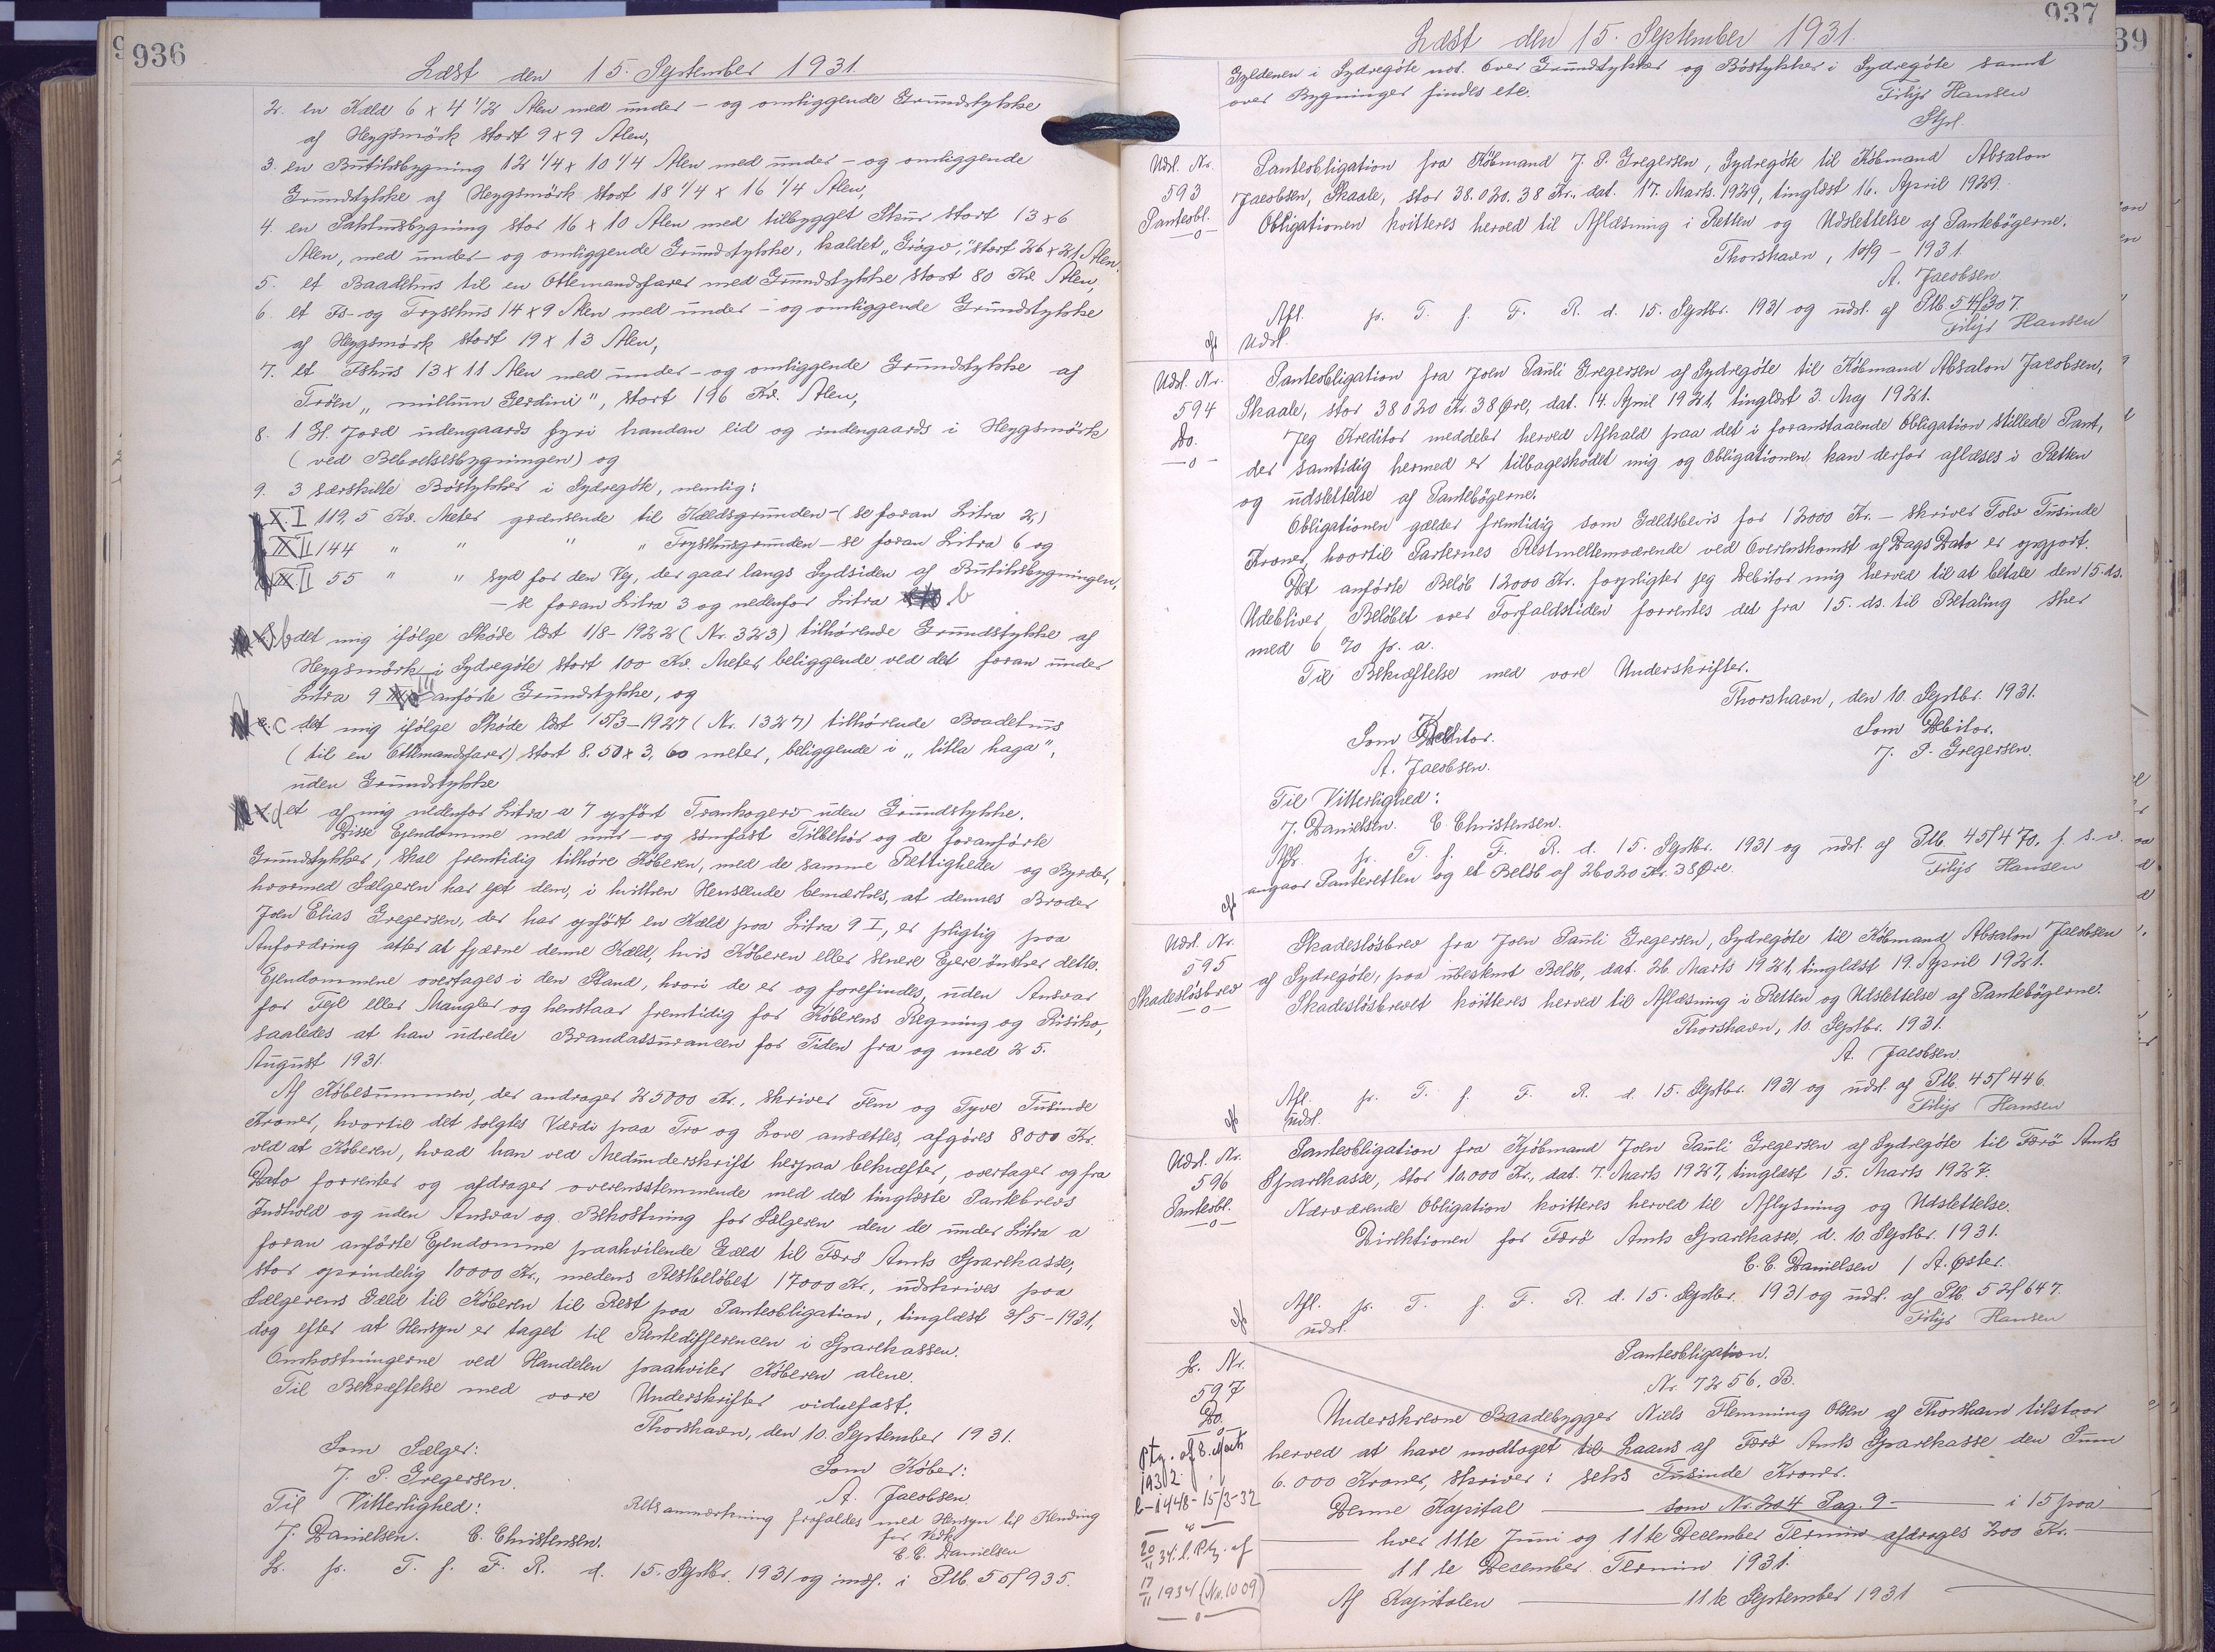 936
Læst den 15. September 1931.
2. en Kæld 6 x 4 1/2 Alen med under- og omliggende Grundstykke
af Heygsmørk stort 9 x 9 Alen,
3. en Butiksbygning 12 1/4 x 10 1/4 Alen med under- og omliggende
Grundstykke af Heygsmørk stort 18 1/4 x 16 1/4 Alen,
4. en Pakhusbygning stor 16 x 10 Alen med tilbygget Skur stort 13 x 6
Alen, med under- og omliggende Grundstykke, kaldet "Grógv", stort 26 x 21 Alen.
5. et Baadehus til en Ottemandsfarer med Grundstykke stort 80 Kv. Alen,
6. et Is- og Frysehus 14 x 9 Alen med under- og omliggende Grundstykke
af Heygsmørk stort 19 x 13 Alen,
7. et Ishus 13 x 11 Alen med under- og omliggende Grundstykke af
Trøen "millum Gerdini", stort 196 Kv. Alen,
8. 1 G. Jord udengaards fyri handan lid og indengaards i Heygsmørk
(ved Beboelsesbygningen) og
9. 3 særskilte Bøstykker i Sydregøte, nemlig:
I 119,5 Kv. Meter grænsende til Kældsgrunden - (se foran Litra 2,)
II 144 " " " " Frysehusgrunden - se foran Litra 6 og
III 55 " " syd for den Vej, der gaar langs Sydsiden af Butiksbygningen,
- se foran Litra 3 og nedenfor Litra b
b det mig ifølge Skøde læst 1/8-1922 (Nr. 323) tilhørende Grundstykke af
Heygsmørk i Sydregøte stort 100 Kv. Meter, beliggende ved det foran under
Litra 9 III anførte Grundstykke, og
c det mig ifølge Skøde læst 15/3-1927 (Nr. 1327) tilhørende Baadehus
(til en Ottemandsfarer) stort 8.50 x 3,60 meter, beliggende i "litla haga",
uden Grundstykke
d et af mig nedenfor Litra a 7 opført Trankogeri uden Grundstykke.
Disse Ejendomme med mur- og sømfast Tilbehør og de foranførte
Grundstykker, skal fremtidig tilhøre Køberen, med de samme Rettigheder og Byrder,
hvormed Sælgeren har ejet dem, i hvilken Henseende bemærkes, at dennes Broder
Joen Elias Gregersen, der har opført en Kæld paa Litra 9 I, er pligtig paa
Anfordring atter at fjærne denne Kæld, hvis Køberen eller senere Ejere ønsker dette.
Ejendommene overtages i den Stand, hvori de er og forefindes, uden Ansvar
for Fejl eller Mangler og henstaar fremtidig for Køberens Regning og Risiko,
saaledes at han udreder Brandassurancen for Tiden fra og med 25.
August 1931.
Af Købesummen, der andrager 25000 Kr., skriver Fem og Tyve Tusinde
Kroner, hvortil det solgtes Værdi paa Tro og Love ansættes, afgøres 8000 Kr.
ved at Køberen, hvad han ved Medunderskrift herpaa bekræfter, overtager og fra
Dato forrenter og afdrager overensstemmende med det tinglæste Pantebrevs
Indhold og uden Ansvar og Bekostning for Sælgeren den de under Litra a
foran anførte Ejendomme paahvilende Gæld til Færø Amts Sparekasse,
stor oprindelig 10000 Kr., medens Restbeløbet 17000 Kr., udskrives paa
Sælgerens Gæld til Køberen til Rest paa Panteobligation, tinglæst 3/5-1921,
dog efter at Hensyn er taget til Rentedifferencen i Sparekassen.
Omkostningerne ved Handelen paahviler Køberen alene.
Til Bekræftelse med vore Underskrifter vidnefast.
Thorshavn, den 10. September 1931.
Som Sælger: Som Køber:
J. P. Gregersen. A. Jacobsen.
Til Vitterlighed: Retsanmærkning frafaldes med Hensyn til Kending
J. Danielsen. C. Christensen. for
C. C. Danielsen
L. p. T. f. F. R. d. 15. Septbr. 1931 og indf. i Ptb. 55/935.
937
39
Læst den 15. September 1931.
Gyldenen i Sydregøte not. over Grundstykker og Bøstykker i Sydregøte samt
over Bygninger findes ete.
Filip Hansen
Stfl.
Udsl. Nr. 593 Panteobl.
Panteobligation fra Købmand J. P. Gregersen, Sydregøte til Købmand Absalon
Jacobsen, Skaale, stor 38.020.38 Kr., dat. 17. Marts. 1929, tinglæst 16. April 1929.
Obligationen kvitteres herved til Aflæsning i Retten og Udslettelse af Pantebøgerne.
Thorshavn, 10/9 - 1931.
A. Jacobsen
Afl. p. T. f. F. R. d. 15. Septbr. 1931 og udsl. af Ptb. 54/307.
Udsl. Filip Hansen
Udsl. Nr. 594 Do.
Panteobligation fra Joen Pauli Gregersen af Sydregøte til Købmand Absalon Jacobsen,
Skaale, stor 38020 Kr. 38 Øre, dat. 14. April 1921, tinglæst 3. Maj 1921.
Jeg Kreditor meddeler herved Afkald paa det i foranstaaende Obligation stillede Pant,
der samtidig hermed er tilbageskødet mig og Obligationen kan derfor aflæses i Retten
og udslettelse af Pantebøgerne.
Obligationen gælder fremtidig som Gældsbevis for 12000 Kr. - skriver Tolv Tusinde
Kroner, hvortil Parternes Restmellemværende ved Overenskomst af Dags Dato er opgjort.
Det anførte Beløb 12000 Kr. forpligter jeg Debitor mig herved til at betale den 15. ds.
Udebliver Beløbet over Forfaldstiden forrentes det fra 15. ds. til Betaling sker
med 6 % p. a.
Til Bekræftelse med vore Underskrifter.
Thorshavn, den 10. Septbr. 1931.
Som Kreditor. Som Debitor.
A. Jacobsen. J. P. Gregersen.
Til Vitterlighed:
J. Danielsen. C. Christensen.
Afl. p. T. f. F. R. d. 15. Septbr. 1931 og udsl. af Ptb. 45/470, f. s. v.
angaar Panteretten og et Beløb af 26020 Kr. 38 Øre. Filip Hansen
Udsl. Nr. 595 Skadesløsbrev
Skadesløsbrev fra Joen Pauli Gregersen, Sydregøte til Købmand Absalon Jacobsen
af Sydregøte, paa ubeskemt Beløb, dat. 26. Marts 1921, tinglæst 19. April 1921.
Skadesløsbrevet kvitteres herved til Aflæsning i Retten og Udslettelse af Pantebøgerne.
Thorshavn, 10. Septbr. 1931.
A. Jacobsen.
Afl. p. T. f. F. R. d. 15. Septbr. 1931 og udsl. af Ptb. 45/446.
Udsl. Filip Hansen
Udsl. Nr. 596 Panteobl.
Panteobligation fra Kjøbmand Joen Pauli Gregersen af Sydregøte til Færø Amts
Sparekasse, stor 10.000 Kr., dat. 7. Marts 1927, tinglæst 15. Marts 1927.
Nærværende Obligation kvitteres herved til Aflysning og Udslettelse.
Direktionen for Færø Amts Sparekasse, d. 10. Septbr. 1931.
C. C. Danielsen / A. Øster.
Afl. p. T. f. F. R. d. 15. Septbr. 1931 og udsl. af Ptb. 52/647.
udsl. Filip Hansen
L. Nr. 597 Do.
Ptg. af 8. Marts
1932.
L-1448-15/3-32
20/11 34. l. Ptg. af
17/11 1934 (Nr. 1009)
Panteobligation.
Nr. 7256. B.
Underskrevne Baadebygger Niels Flemming Olsen af Thorshavn tilstaar
herved at have modtaget til Laans af Færø Amts Sparekasse den Sum
6.000 Kroner, skriver: seks Tusinde Kroner.
Denne Kapital — som Nr. 204 Pag. 9 — i 15 paa
— hver 11te Juni og 11te December Termin afdrages 200 Kr. —
— 11te December Termin 1931.
Af Kapitalen — 11te September 1931 —